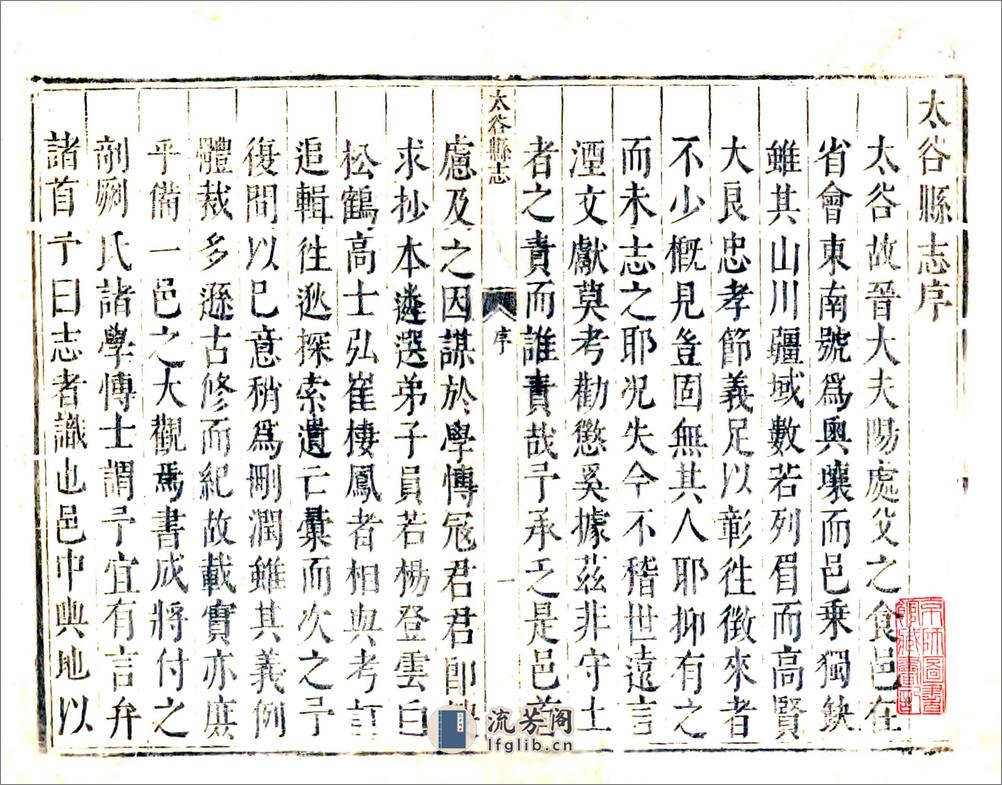 太谷縣志序
太谷故晉大夫陽處父之食邑在
省會東南號為輿壤而邑乘獨缺
雖其山川疆域數若列眉而高賢
大良忠孝節義足以彰徃徵來者
不少概見豈固無其人耶抑有之
而未志之耶况失今不稽世遠言
湮文獻莫考勸懲奚據茲非守土
者之責而誰責哉予承乏是邑首
太谷縣志
序
一
慮及之因謀於學愽冦君君即
求抄本遴選弟子員若楊登雲白
松鶴高士弘崔棲鳳者相與考訂
追輯徃逖探索遺亡彙而次之予
復間以已意稍為刪潤雖其義例
體裁多遜古修而紀故載實亦庶
乎備一邑之大觀焉書成將付之
剞劂氏諸學愽士謂予宜有言弁
諸首予曰志者識也邑中輿地以
京師圖書館藏書記
流芳阁
lfglib.cn